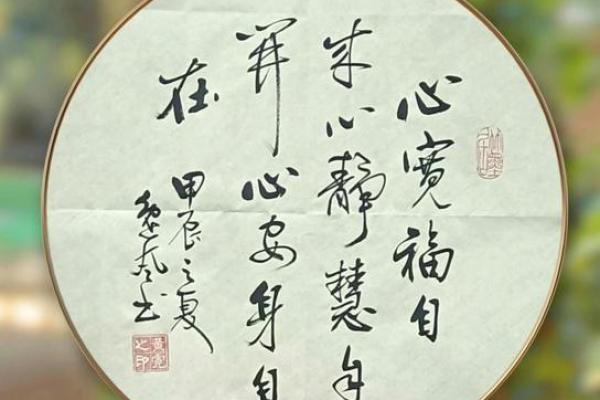 心寬福自
来心静慧自
開心安身自
在
甲辰之夏